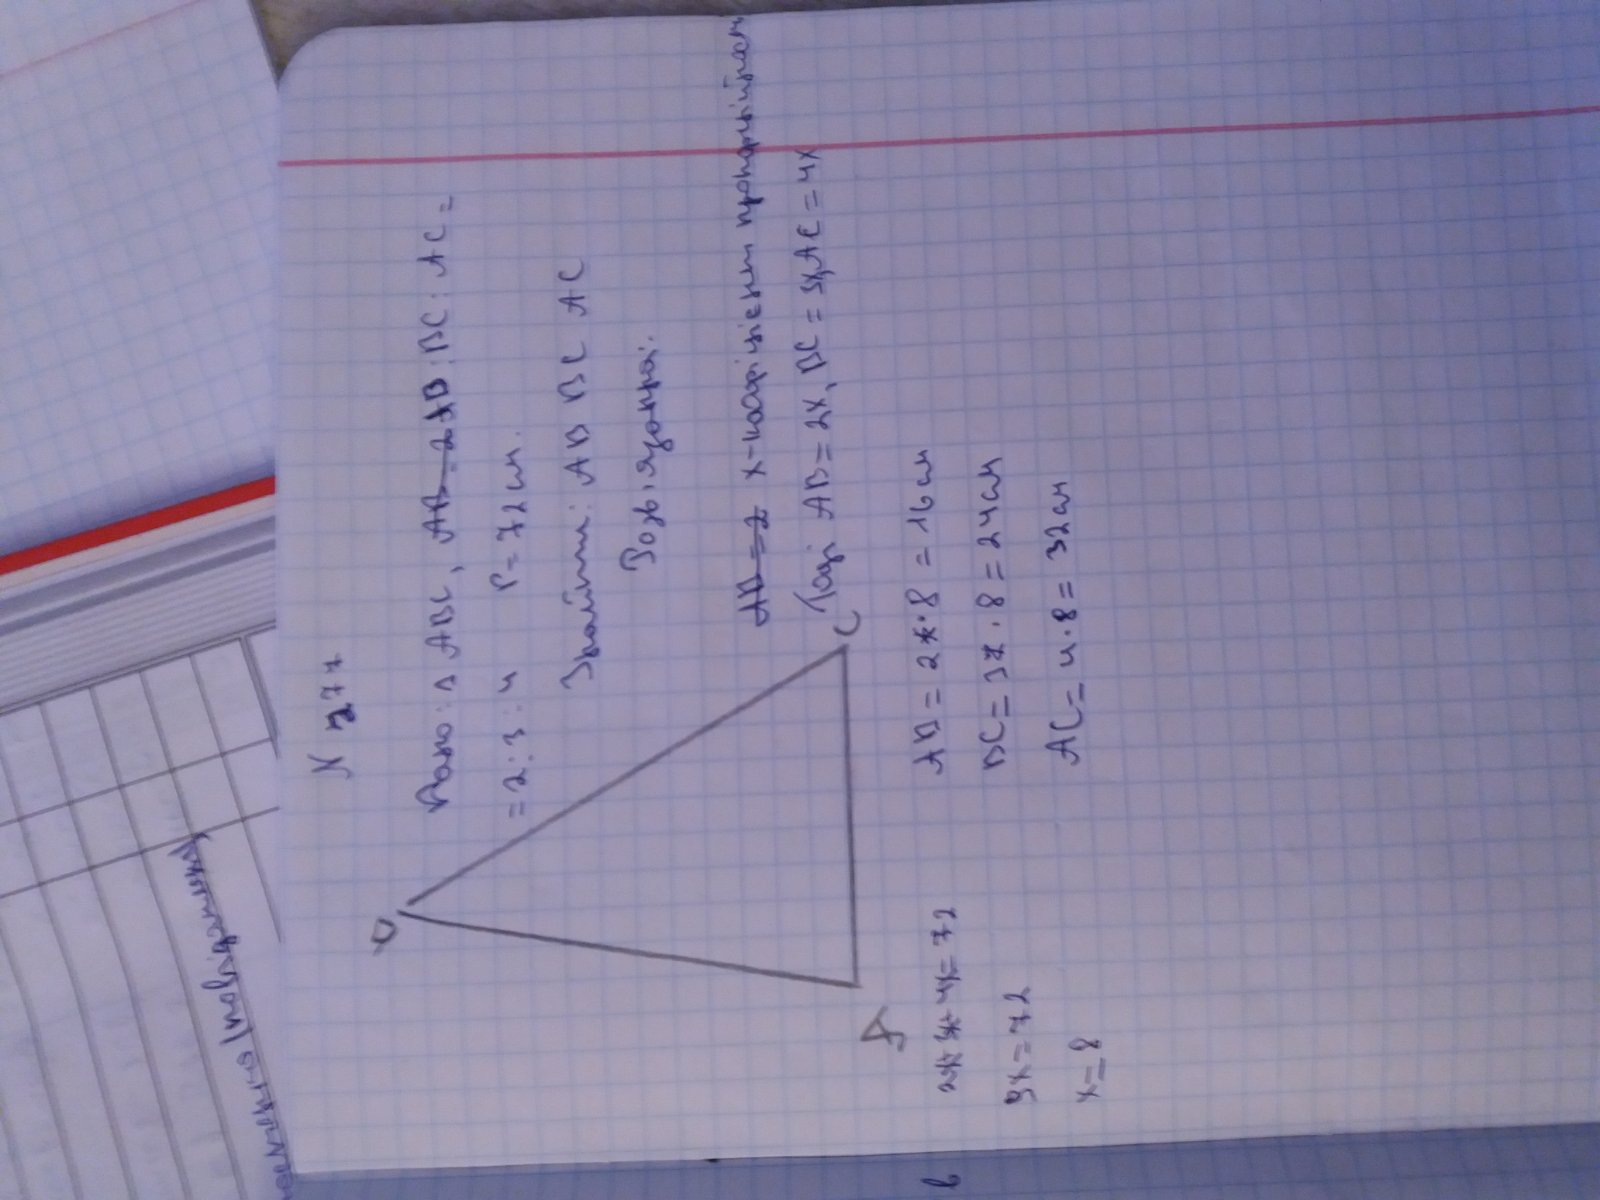 N 277
Дано: Δ ABC, AB = 2 AB : BC : AC =
= 2 : 3 : 4 P = 72 см.
Знайти: AB BC AC
Розв'язання:
AB = 2 x - коефіцієнт пропорційност
Тоді AB = 2x, BC = 3x, AC = 4x
B
C
A
2x+3x+4x=72
9x = 72
x = 8
AB = 2 · 8 = 16 см
BC = 3 · 8 = 24 см
AC = 4 · 8 = 32 см